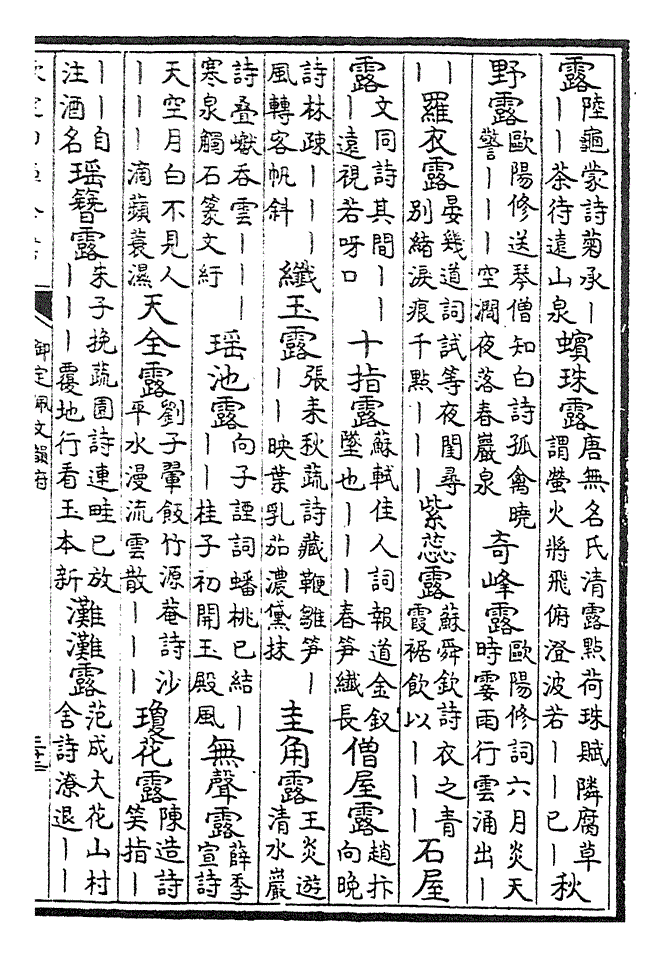 露陸龜蒙詩菊承丨丨丨茶待遠山泉 蠙珠露唐無名氏清露點荷珠賦隣腐草謂螢火將飛俯澄波若丨丨已丨 秋
野露歐陽修送琴僧知白詩孤禽曉警丨丨丨空澗夜落春巖泉 奇峰露歐陽修詞六月炎天時霎雨行雲涌出丨
丨丨 羅衣露晏幾道詞試等夜闌尋別緒淚痕千點丨丨丨 紫蕊露蘇舜欽詩衣之青霞裾飲以丨丨丨 石屋
露文同詩其間丨丨丨遠視若呀口 十指露蘇軾佳人詞報道金釵墜也丨丨丨春筍纖長 僧屋露趙抃向晚
詩林疎丨丨丨風轉客帆斜 纖玉露張耒秋蔬詩藏鞭雛笋丨丨丨映葉乳茄濃黛抹 圭角露王炎遊清水巖
詩叠巘吞雲丨丨丨寒泉觸石篆文紆 瑶池露向子諲詞蟠桃已結丨丨丨桂子初開玉殿風 無聲露薛季宣詩
天空月白不見人丨丨丨滴蘋蓑濕 天全露劉子翬飯竹源菴詩沙平水漫流雲散丨丨丨 瓊花露陳造詩笑指丨
丨丨自注酒名 瑶簪露朱子挽蔬園詩連畦已放丨丨丨覆地行看玉本新 灘灘露范成大花山村舍詩潦退丨丨
御定佩文韻府